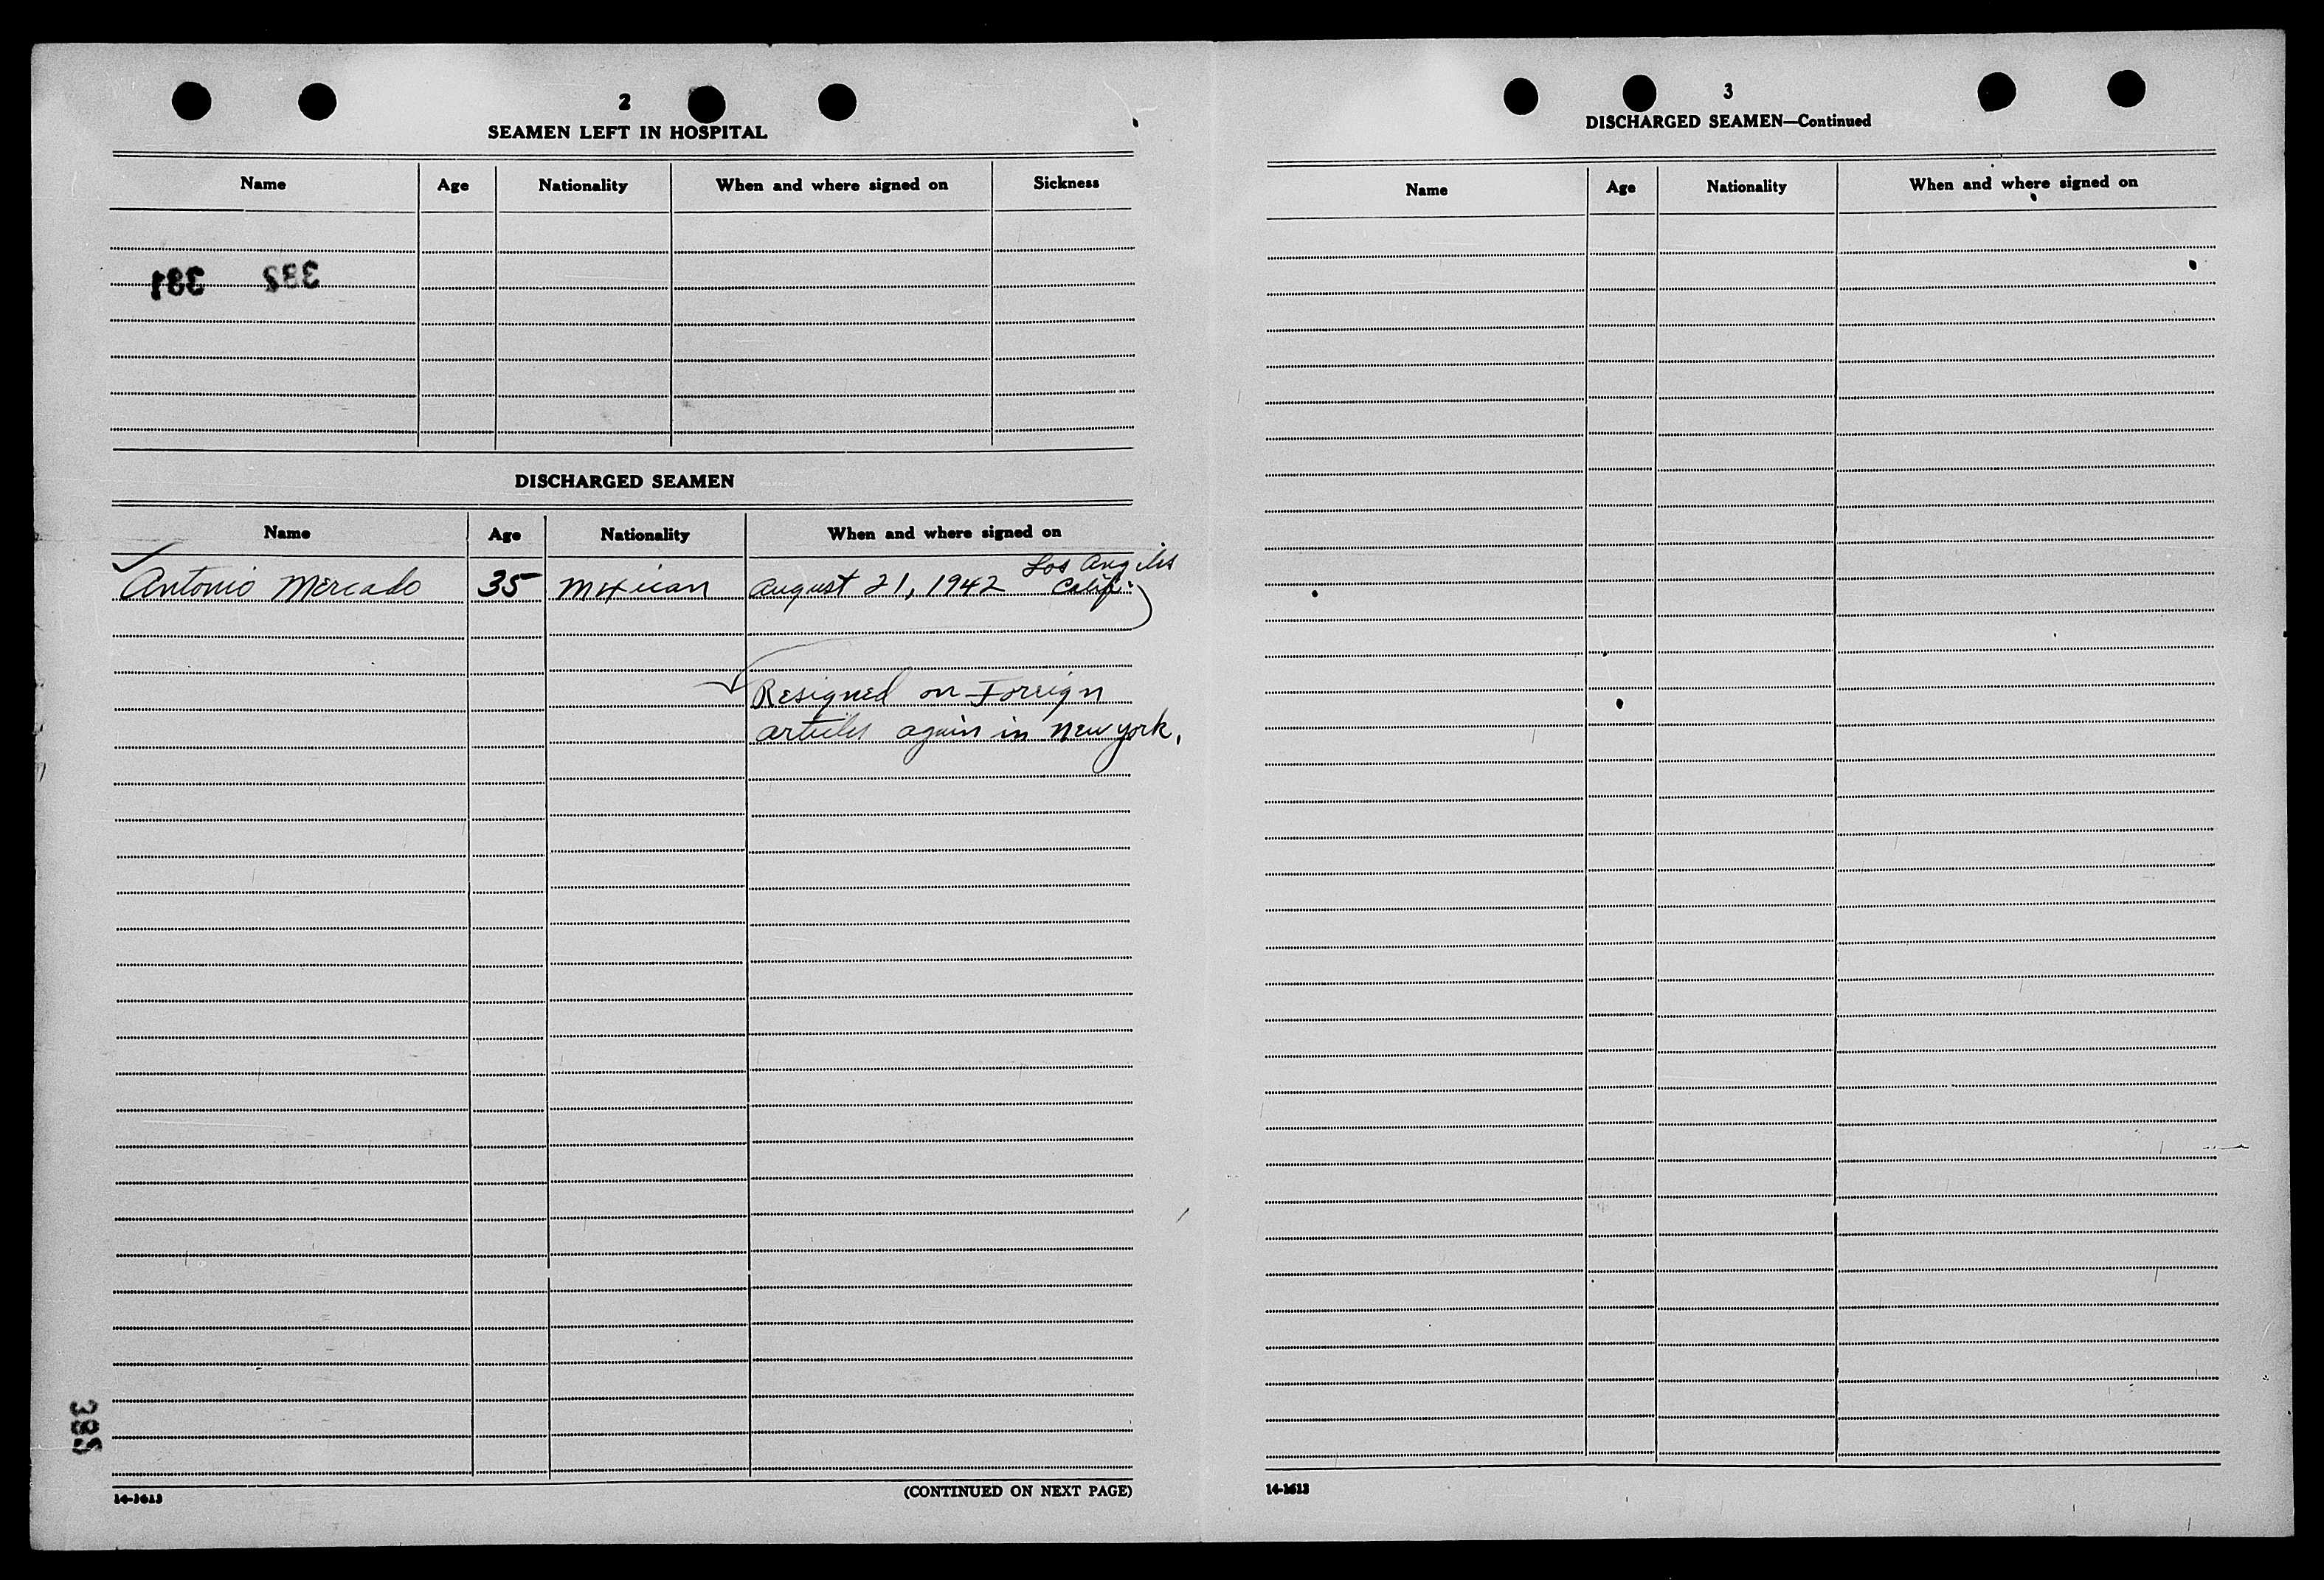 2
SEAMEN LEFT IN HOSPITAL
Name Age Nationality When and where signed on Sickness
391 392
DISCHARGED SEAMEN
Name Age Nationality When and where signed on
Antonio Mercado 35 Mexican August 21, 1942 Los Angeles
Calif.
Resigned on Foreign
articles again in New York.
(CONTINUED ON NEXT PAGE)
14-1613
3
DISCHARGED SEAMEN—Continued
Name Age Nationality When and where signed on
14-1613